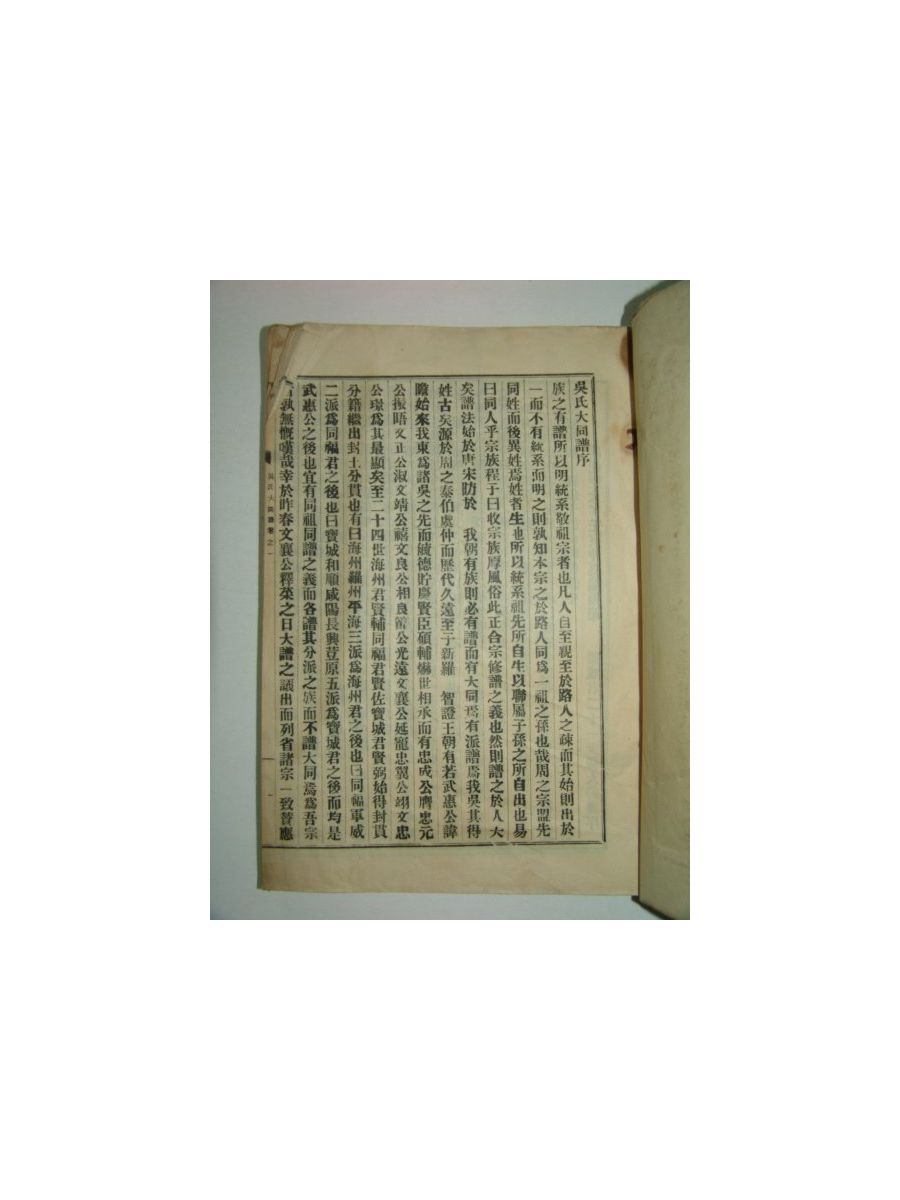 吳氏大同譜序
族之有譜所以明統系敬祖宗者也凡人自至親至於路人之疎而其始則出於
一而不有統系而明之則孰知本宗之於路人同爲一祖之孫也哉周之宗盟先
同姓而後異姓爲姓者生也所以統系祖先所自生以聯屬子孫之所自出也易
曰同人乎宗族程子曰收宗族厚風俗此正合宗修譜之義也然則譜之於人大
矣譜法始於唐宋昉於 我朝有族則必有譜而有大同焉有派譜焉我吳其得
姓古矣源於周之泰伯處仲而歷代久遠至于新羅 智證王朝有若武惠公諱
瞻始來我東爲諸吳之先而績德貯慶賢臣碩輔爀世相承而有忠成公膺忠元
公振唔文正公淑文靖公禧文良公相良公光遠文襄公延寵忠翼公翊文忠
公璟爲其最顯矣至二十四世海州君賢輔同福君賢佐寶城君賢弼始得封貫
分籍繼出封土分貫也有曰海州羅州平海三派爲海州君之後也曰同福軍威
二派爲同福君之後也曰寶城和順咸陽長興荳原五派爲寶城君之後而均是
武惠公之後也宜有同祖同譜之義而各譜其分派之族而不譜大同焉爲吾宗
孰無慨嘆哉幸於昨春文襄公釋菜之日大譜之議出而列省諸宗一致贊應
吳氏大同譜卷之一
一